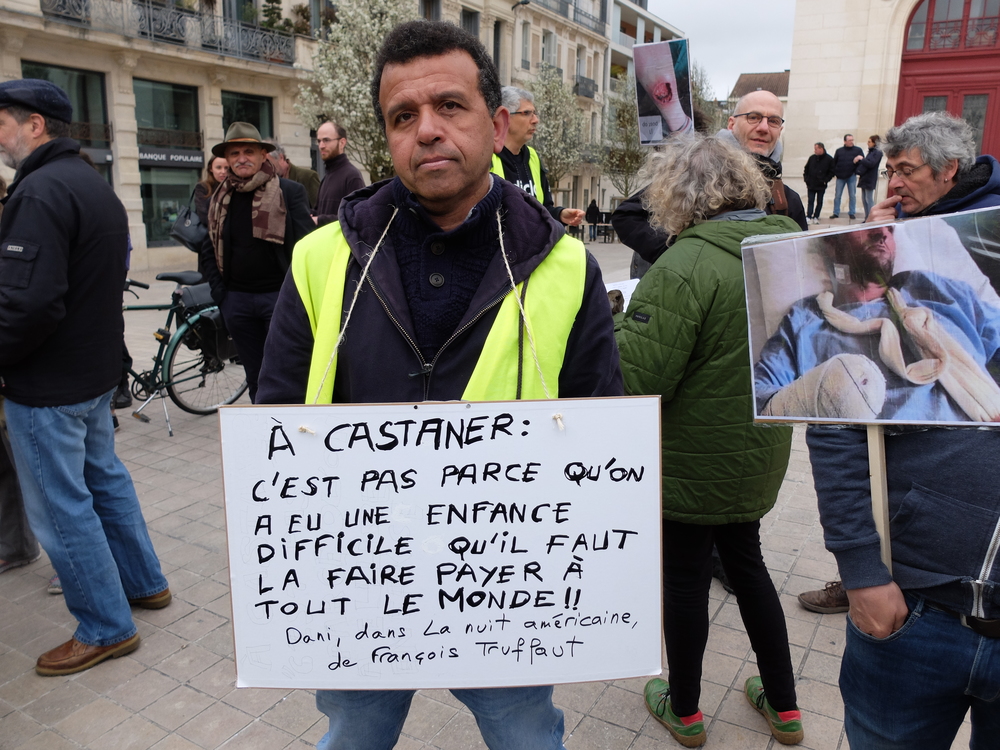 BANQUE POPULAIRE
À CASTANER:
C'EST PAS PARCE QU'ON
A EU UNE ENFANCE
DIFFICILE QU'IL FAUT
LA FAIRE PAYER À
TOUT LE MONDE!!
Dani, dans La nuit américaine,
de François Truffaut